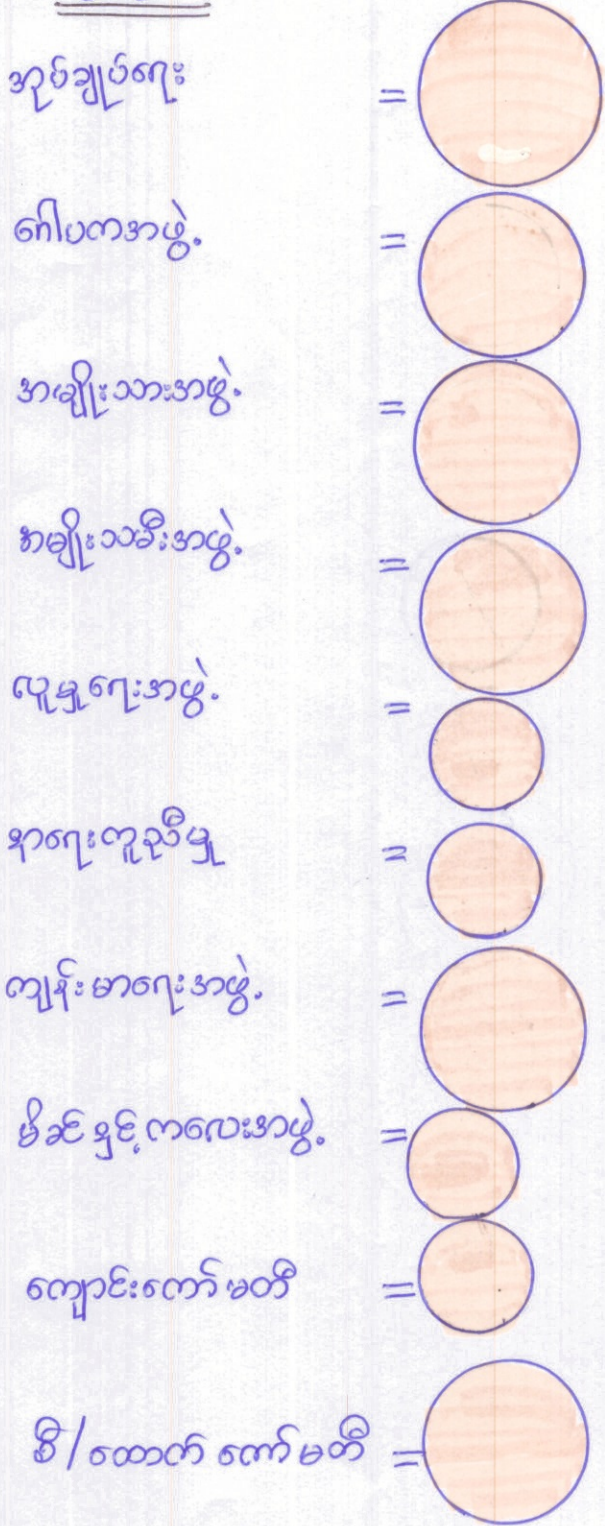 အုပ်ချုပ်ရေး =
ဂေါပကအဖွဲ့ =
အမျိုးသားအဖွဲ့ =
အမျိုးသမီးအဖွဲ့ =
လူမှုရေးအဖွဲ့ =
နာရေးကူညီမှု =
ကျန်းမာရေးအဖွဲ့ =
မိခင်နှင့်ကလေးအဖွဲ့ =
ကျောင်းကော်မတီ =
စီ/ထောက် ကော်မတီ =